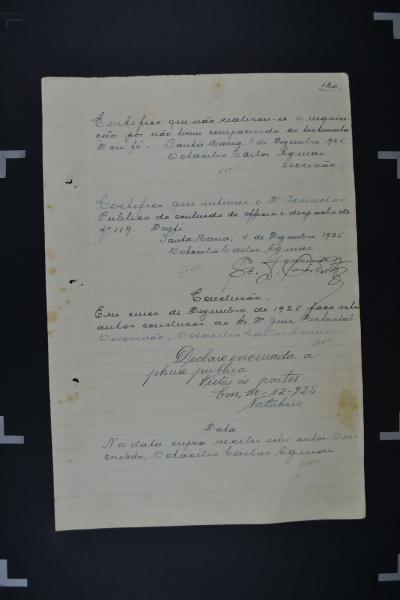 120
Certifico que não realisou-se a inquiri-
ção por não terem comparecido as testemunhas
Dou fé. Santa Maria, 1 de Dezembro 1925
Octacilio Carlos Aguiar
escrivão
Certifico que intimei o Dr Promotor
Publico do conteudo do officio e despacho de
fs 119. Dou fé
Santa Maria, 4 de Dezembro 1925
Octacilio Carlos Aguiar
Conclusão
Em cinco de Dezembro de 1925 faço estes
autos conclusos ao Sr. Dr. Juiz Districtal
O escrivão, Octacilio Carlos Aguiar
Declaro encerrada a
phase publica.
Vista as partes
Em, 10-12-925
Data
Na data supra recebi estes autos O es-
crivão, Octacilio Carlos Aguiar